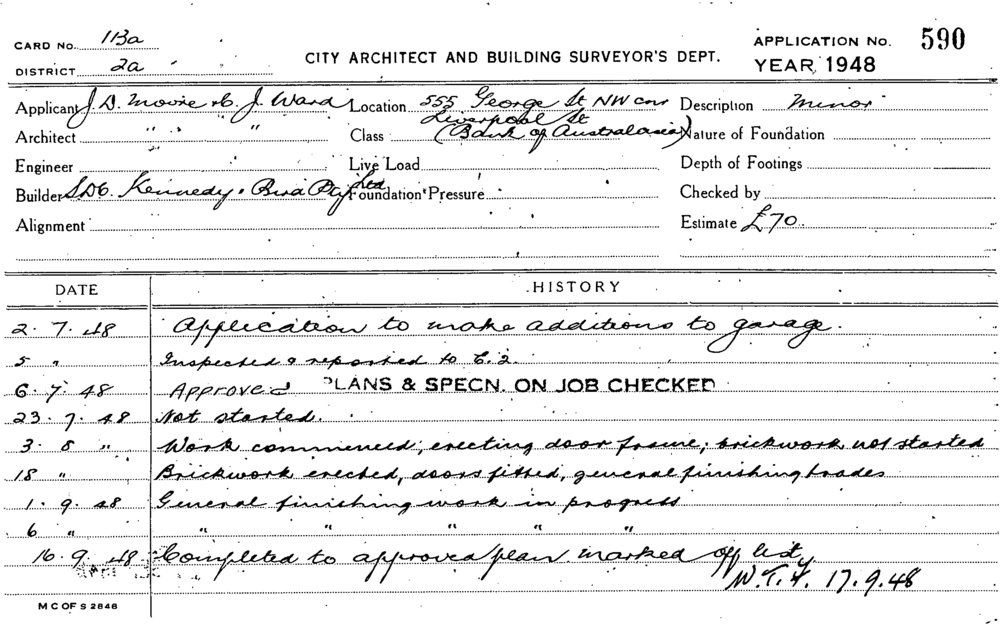 CARD No. 113a
DISTRICT 2a
CITY ARCHITECT AND BUILDING SURVEYOR'S DEPT.
APPLICATION No. 590
YEAR 1948
Applicant J. D. Moore & C. J. Ward Location 555 George St NW cnr Description Minor
Liverpool St
Architect " " " Class (Bank of Australasia) Nature of Foundation
Engineer Live Load Depth of Footings
Builder S.D.C. Kennedy & Bird Pty Ltd Foundation Pressure Checked by
Alignment Estimate £70
DATE HISTORY
2. 7. 48 Application to make additions to garage.
5 " Inspected & reported to C.2.
6. 7. 48 Approved PLANS & SPECN. ON JOB CHECKED
23. 7. 48 Not started.
3. 8 " Work commenced; erecting door frame; brickwork not started
18 " Brickwork erected, doors fitted, general finishing trades
1. 9. 48 General finishing work in progress
6 " " " " " "
16. 9. 48 Completed to approved plan marked off list
17. 9. 48
M C OF S 2848